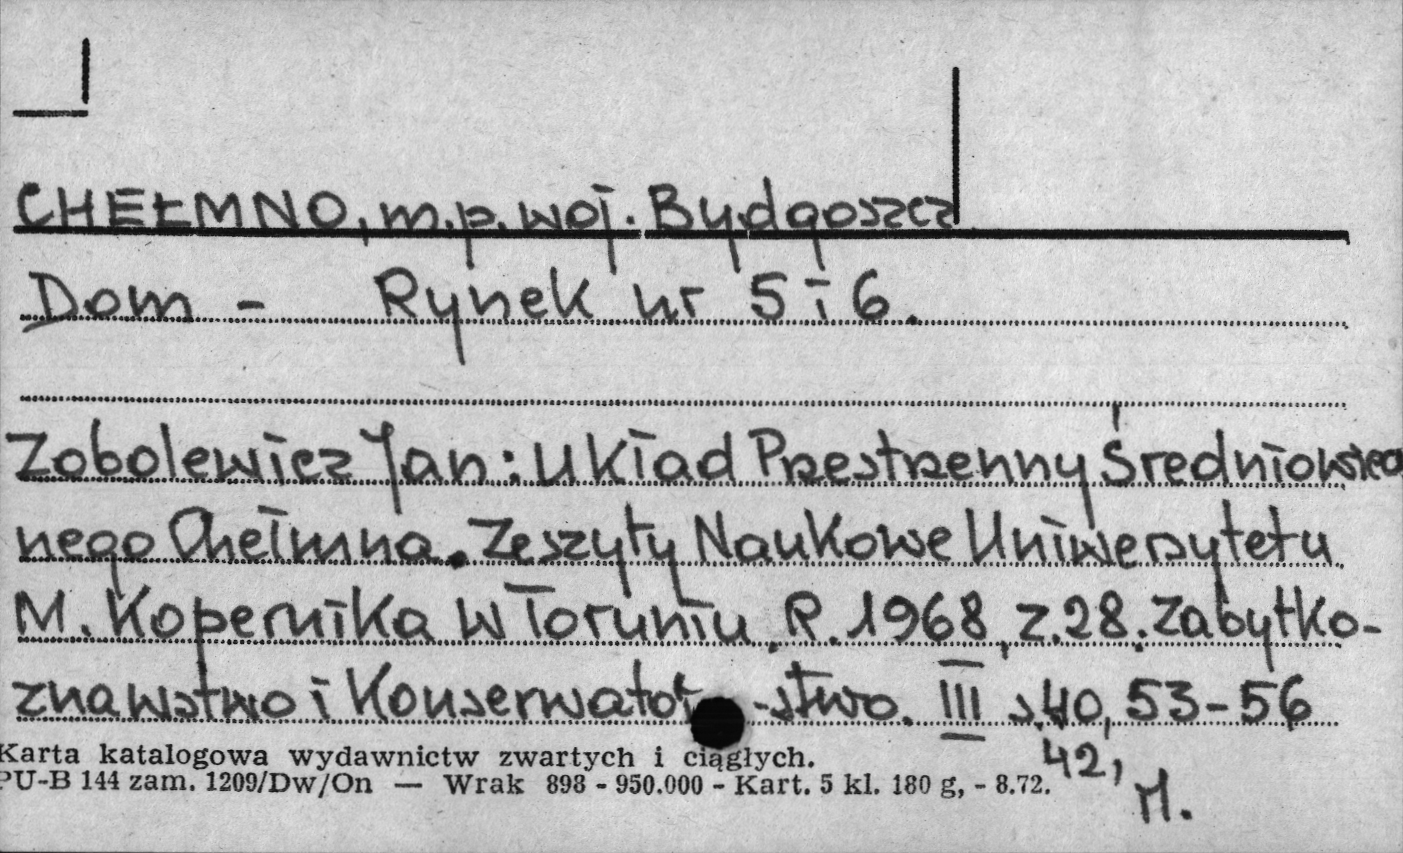 CHEŁMNO, m.p. woj. Bydgoszcz
Dom - Rynek nr 5 i 6.
Zobolewicz Jan: Układ Przestrzenny Średniowiecz
nego Chełmna. Zeszyty Naukowe Uniwersytetu
M. Kopernika w Toruniu, R. 1968, z. 28. Zabytko-
znawstwo i Konserwator-stwo. III s. 40, 53-56
42,
M.
Karta katalogowa wydawnictw zwartych i ciągłych.
PU-B 144 zam. 1209/Dw/On — Wrak 898 - 950.000 - Kart. 5 kl. 180 g, - 8.72.